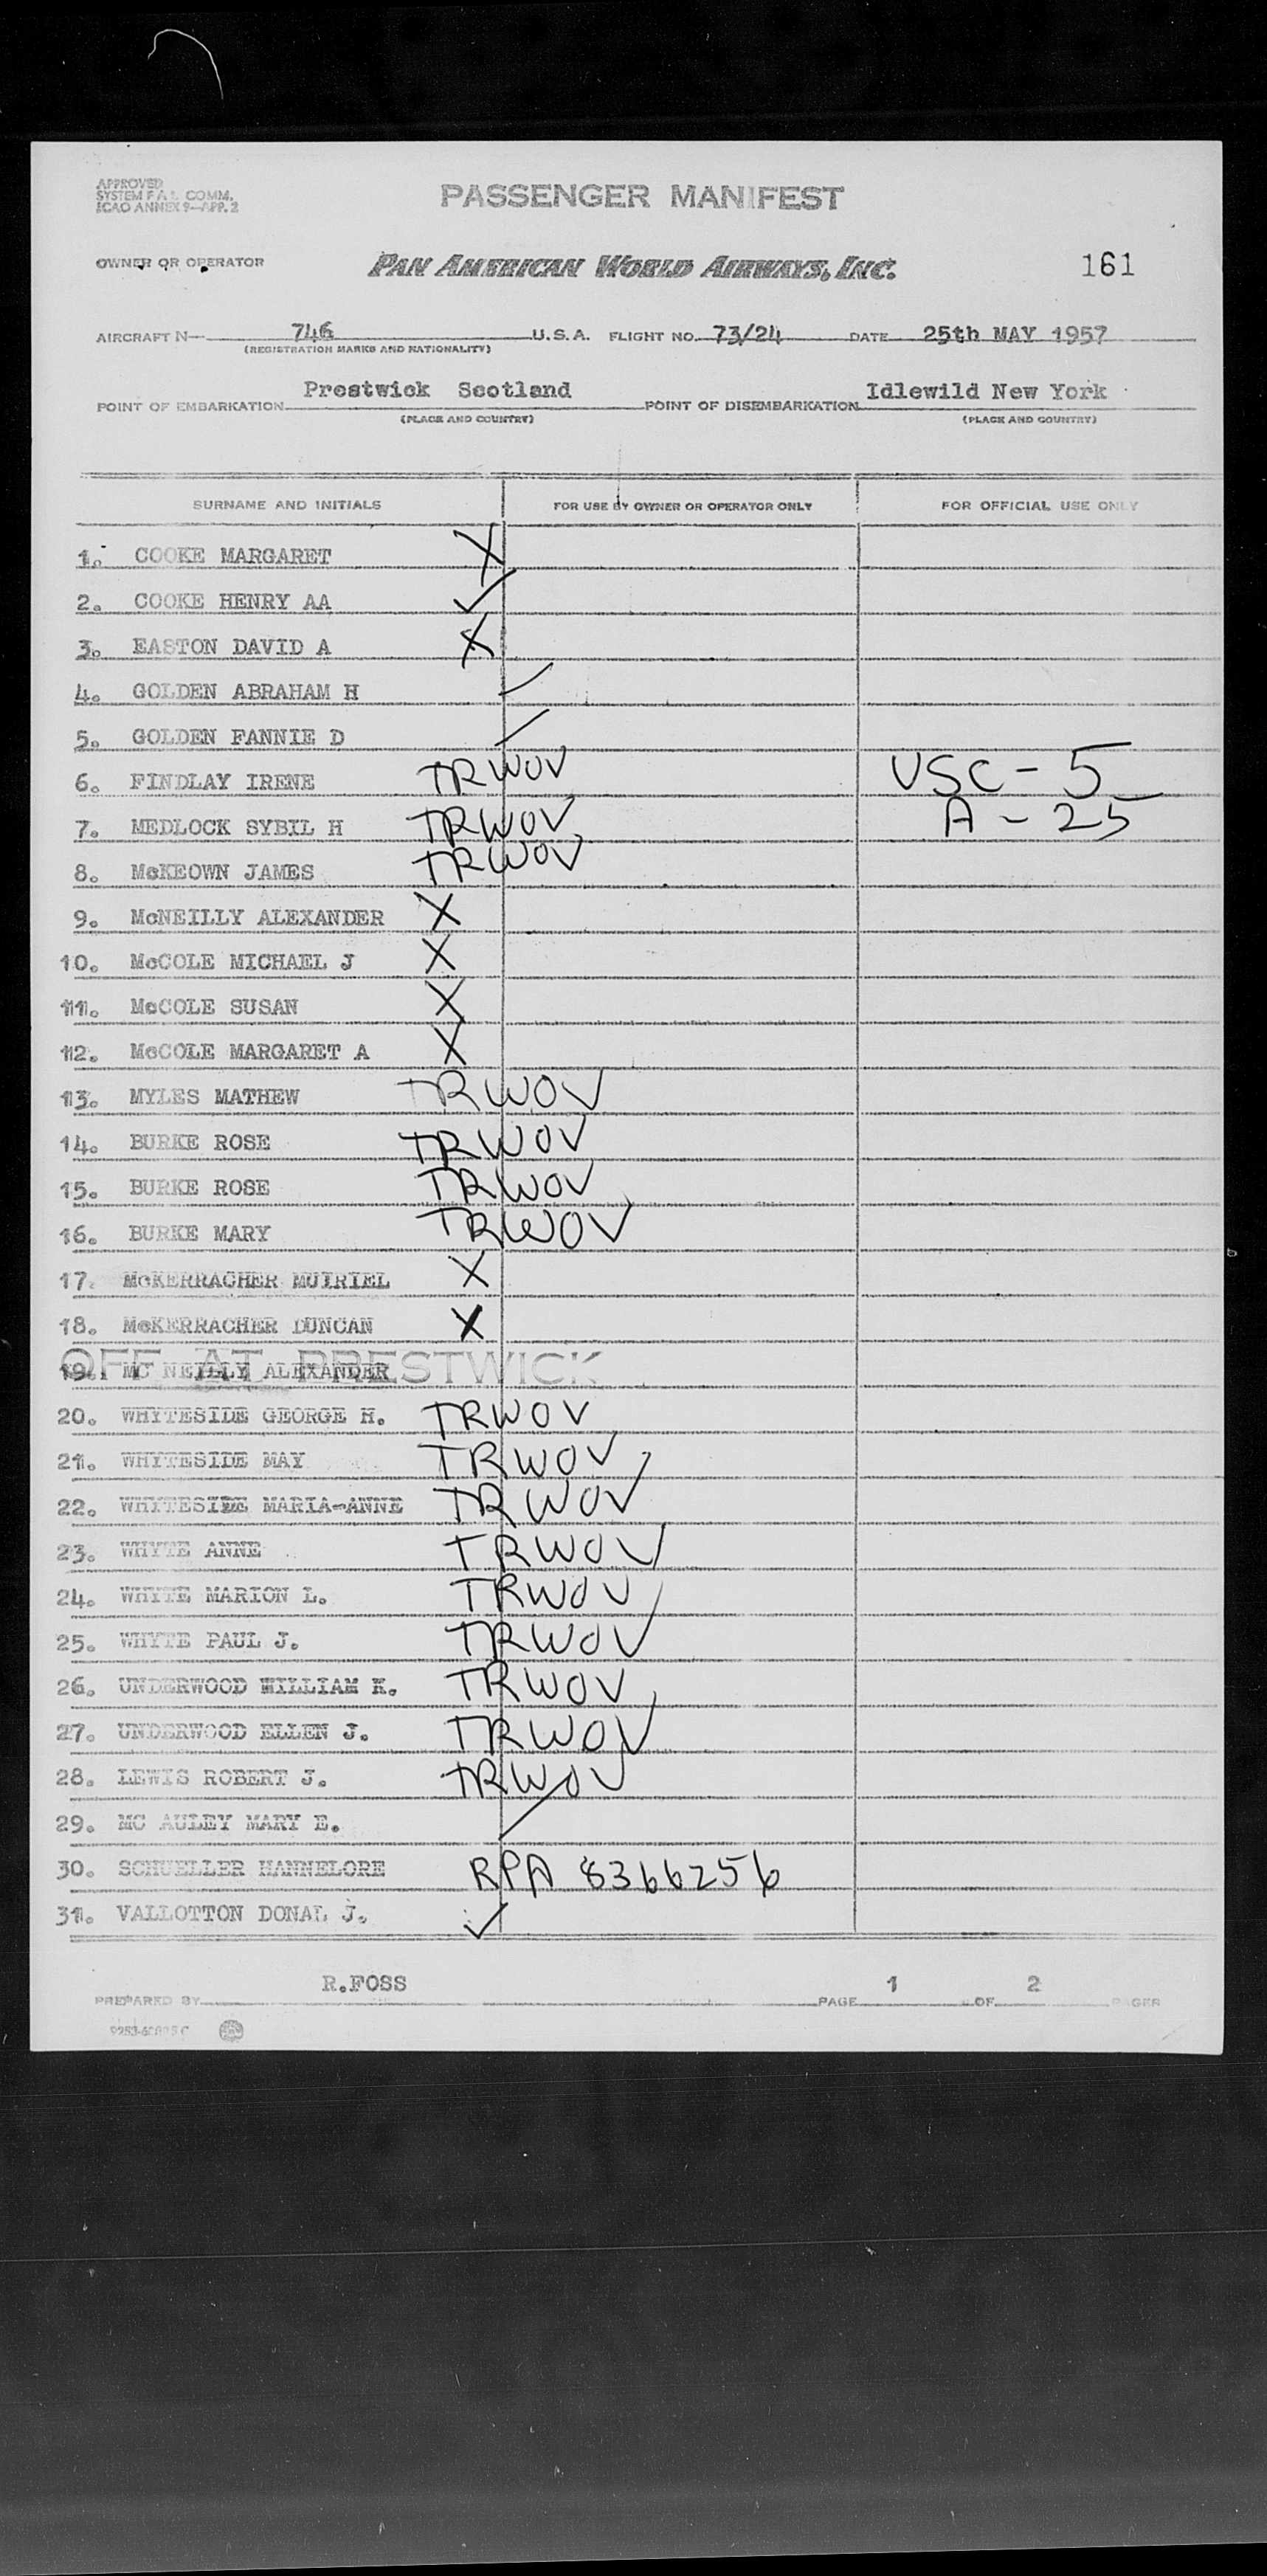 APPROVED
SYSTEM F.A.L. COMM.
ICAO ANNEX 9—APP. 2
PASSENGER MANIFEST
OWNER OR OPERATOR PAN AMERICAN WORLD AIRWAYS, INC. 161
AIRCRAFT N— 746 U.S.A. FLIGHT NO. 73/24 DATE 25th MAY 1957
(REGISTRATION MARKS AND NATIONALITY)
POINT OF EMBARKATION Prestwick Scotland POINT OF DISEMBARKATION Idlewild New York
(PLACE AND COUNTRY) (PLACE AND COUNTRY)
SURNAME AND INITIALS FOR USE BY OWNER OR OPERATOR ONLY FOR OFFICIAL USE ONLY
1. COOKE MARGARET X
2. COOKE HENRY AA ✓
3. EASTON DAVID A X
4. GOLDEN ABRAHAM H ✓
5. GOLDEN FANNIE D ✓
6. FINDLAY IRENE TRWOV USC - 5
7. MEDLOCK SYBIL H TRWOV A - 25
8. McKEOWN JAMES TRWOV
9. McNEILLY ALEXANDER X
10. McCOLE MICHAEL J X
11. McCOLE SUSAN X
12. McCOLE MARGARET A X
13. MYLES MATHEW TRWOV
14. BURKE ROSE TRWOV
15. BURKE ROSE TRWOV
16. BURKE MARY TRWOV
17. McKERRACHER MUIRIEL X
18. McKERRACHER DUNCAN X
OFF AT PRESTWICK
19. MC NEILLY ALEXANDER
20. WHITESIDE GEORGE H. TRWOV
21. WHITESIDE MAY TRWOV
22. WHITESIDE MARIA-ANNE TRWOV
23. WHYTE ANNE TRWOV
24. WHYTE MARION L. TRWOV
25. WHYTE PAUL J. TRWOV
26. UNDERWOOD WILLIAM K. TRWOV
27. UNDERWOOD ELLEN J. TRWOV
28. LEWIS ROBERT J. TRWOV
29. MC AULEY MARY E. ✓
30. SCHUELLER HANNELORE RPA 8366256
31. VALLOTTON DONAL J. ✓
PREPARED BY R.FOSS PAGE 1 OF 2 PAGES